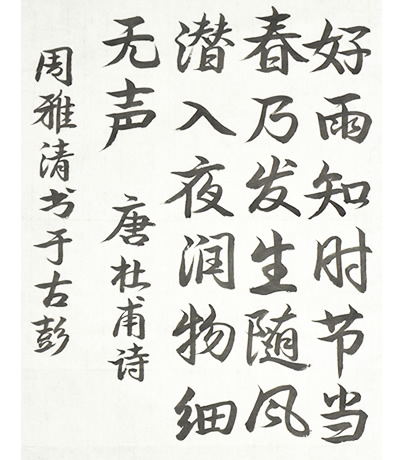 好雨知时节当
春乃发生随风
潜入夜润物细
无声 唐杜甫诗
周雅清书于古彭